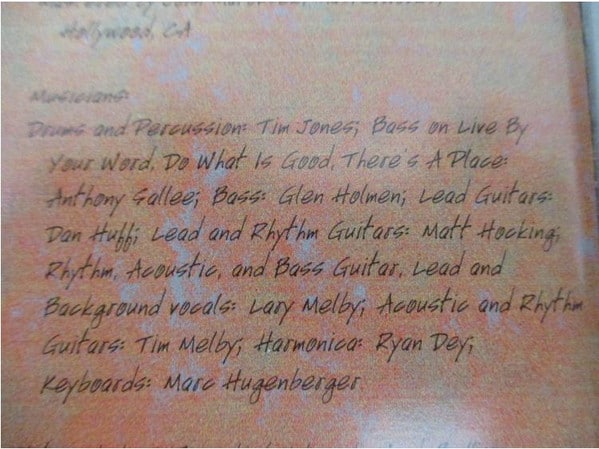 Hollywood, CA
Musicians:
Drums and Percussion: Tim Jones; Bass on Live By
Your Word, Do What Is Good, There's A Place:
Anthony Sallee; Bass: Glen Holmen; Lead Guitars:
Dan Huff; Lead and Rhythm Guitars: Matt Hocking;
Rhythm, Acoustic, and Bass Guitar, Lead and
Background vocals: Lary Melby; Acoustic and Rhythm
Guitars: Tim Melby; Harmonica: Ryan Dey;
Keyboards: Marc Hugenberger